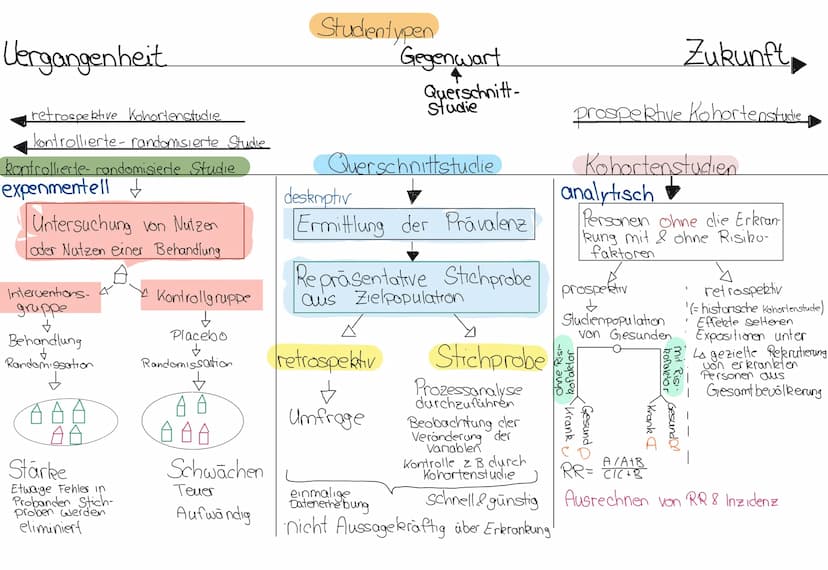 Studientypen
Vergangenheit
Gegenwart
Zukunft
Querschnitt-
studie
retrospektive Kohortenstudie
prospektive Kohortenstudie
kontrollierte-randomisierte Studie
kontrollierte-randomisierte Studie
experimentell
Untersuchung von Nutzen
oder Nutzen einer Behandlung
Interventions-
gruppe
Kontrollgruppe
Behandlung
Randomissation
Placebo
Randomissation
Stärke
Etwaige Fehler in
Probanden Stich-
proben werden
eliminiert
Schwächen
Teuer
Aufwändig
Querschnittstudie
deskriptiv
Ermittlung der Prävalenz
Repräsentative Stichprobe
aus Zielpopulation
retrospektiv
Umfrage
Stichprobe
Prozessanalyse
durchzuführen
Beobachtung der
Veränderung der
Variablen
Kontrolle z B durch
Kohortenstudie
einmalige
Datenerhebung
schnell & günstig
nicht Aussagekräftig über Erkrankung
Kohortenstudien
analytisch
Personen ohne die Erkran-
kung mit & ohne Risiko-
faktoren
prospektiv
Studienpopulation
von Gesunden
retrospektiv
(= historische Kohortenstudie)
Effekte seltener
Expositionen unter
↳ gezielle Rekrutierung
von erkrankten
Personen aus
Gesamtbevölkerung
ohne Risi-
kofaktor
mit Ris-
kofaktor
Krank C
Gesund D
Krank A
Gesund B
RR = A/A+B
C/C+B
Ausrechnen von RR & Inzidenz